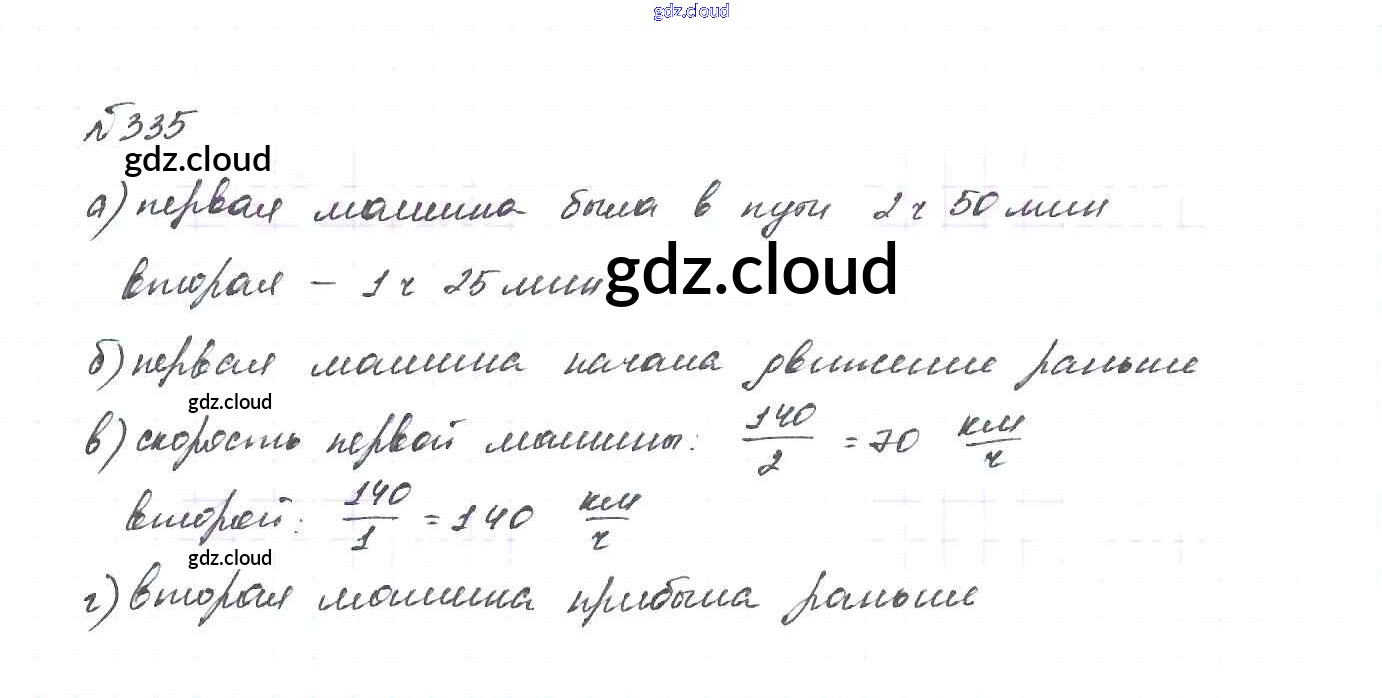 gdz.cloud
№335
gdz.cloud
а) первая машина была в пути 2 ч 50 мин
вторая – 1 ч 25 мин gdz.cloud
б) первая машина начала движение раньше
gdz.cloud
в) скорость первой машины: 140/2 = 70 км/ч
второй: 140/1 = 140 км/ч
gdz.cloud
г) вторая машина прибыла раньше